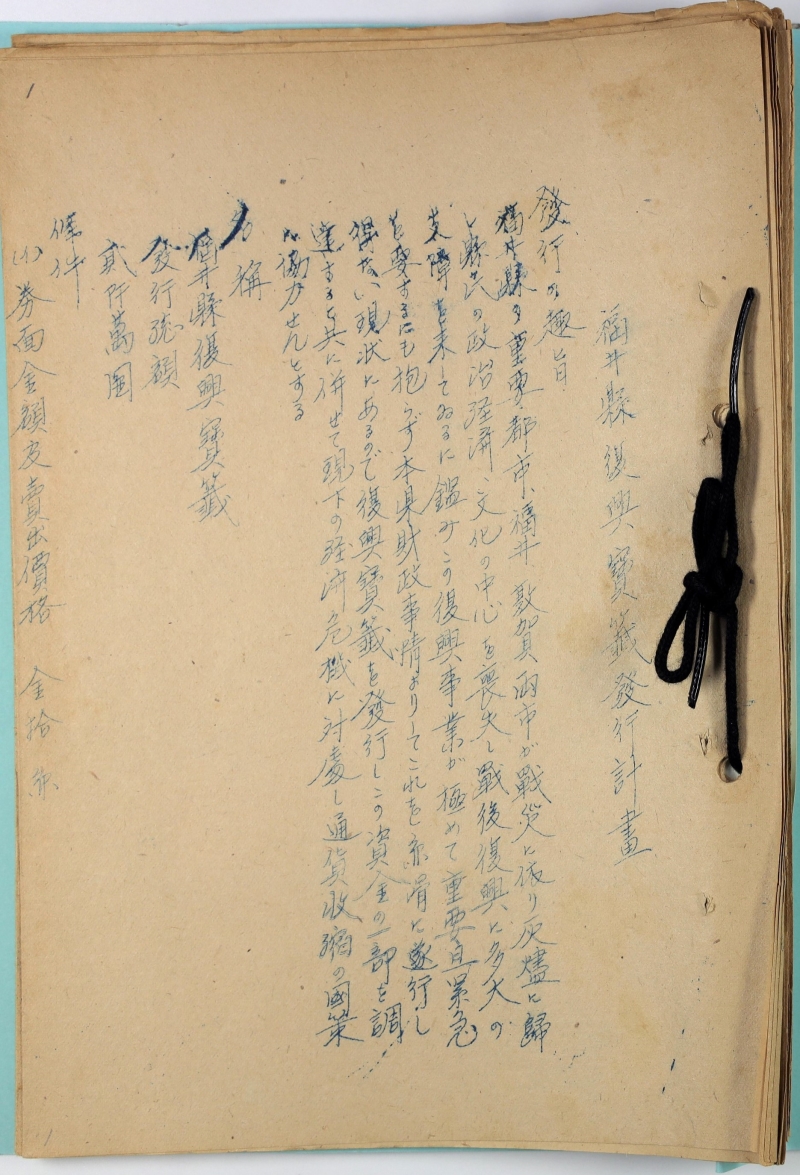 福井縣復興寳籤發行計畫
發行の趣旨
福井縣の重要都市、福井敦賀両市が戰災に依り灰燼に歸
し縣民の政治経済、文化の中心を喪失し戰後復興に多大の
支障を来してゐるに鑑みこの復興事業が極めて重要且緊急
を要するにも抱らず本県財政事情よりしてこれを円滑に遂行し
得ない現状にあるので復興寳籤を發行しこの資金の一部を調
達すると共に併せて現下の経済危機に対處し通貨收縮の國策
に協力せんとする
名稱
福井縣復興寳籤
發行總額
貳阡萬圓
條件
(1) 券面金額及賣出價格 金拾円
1